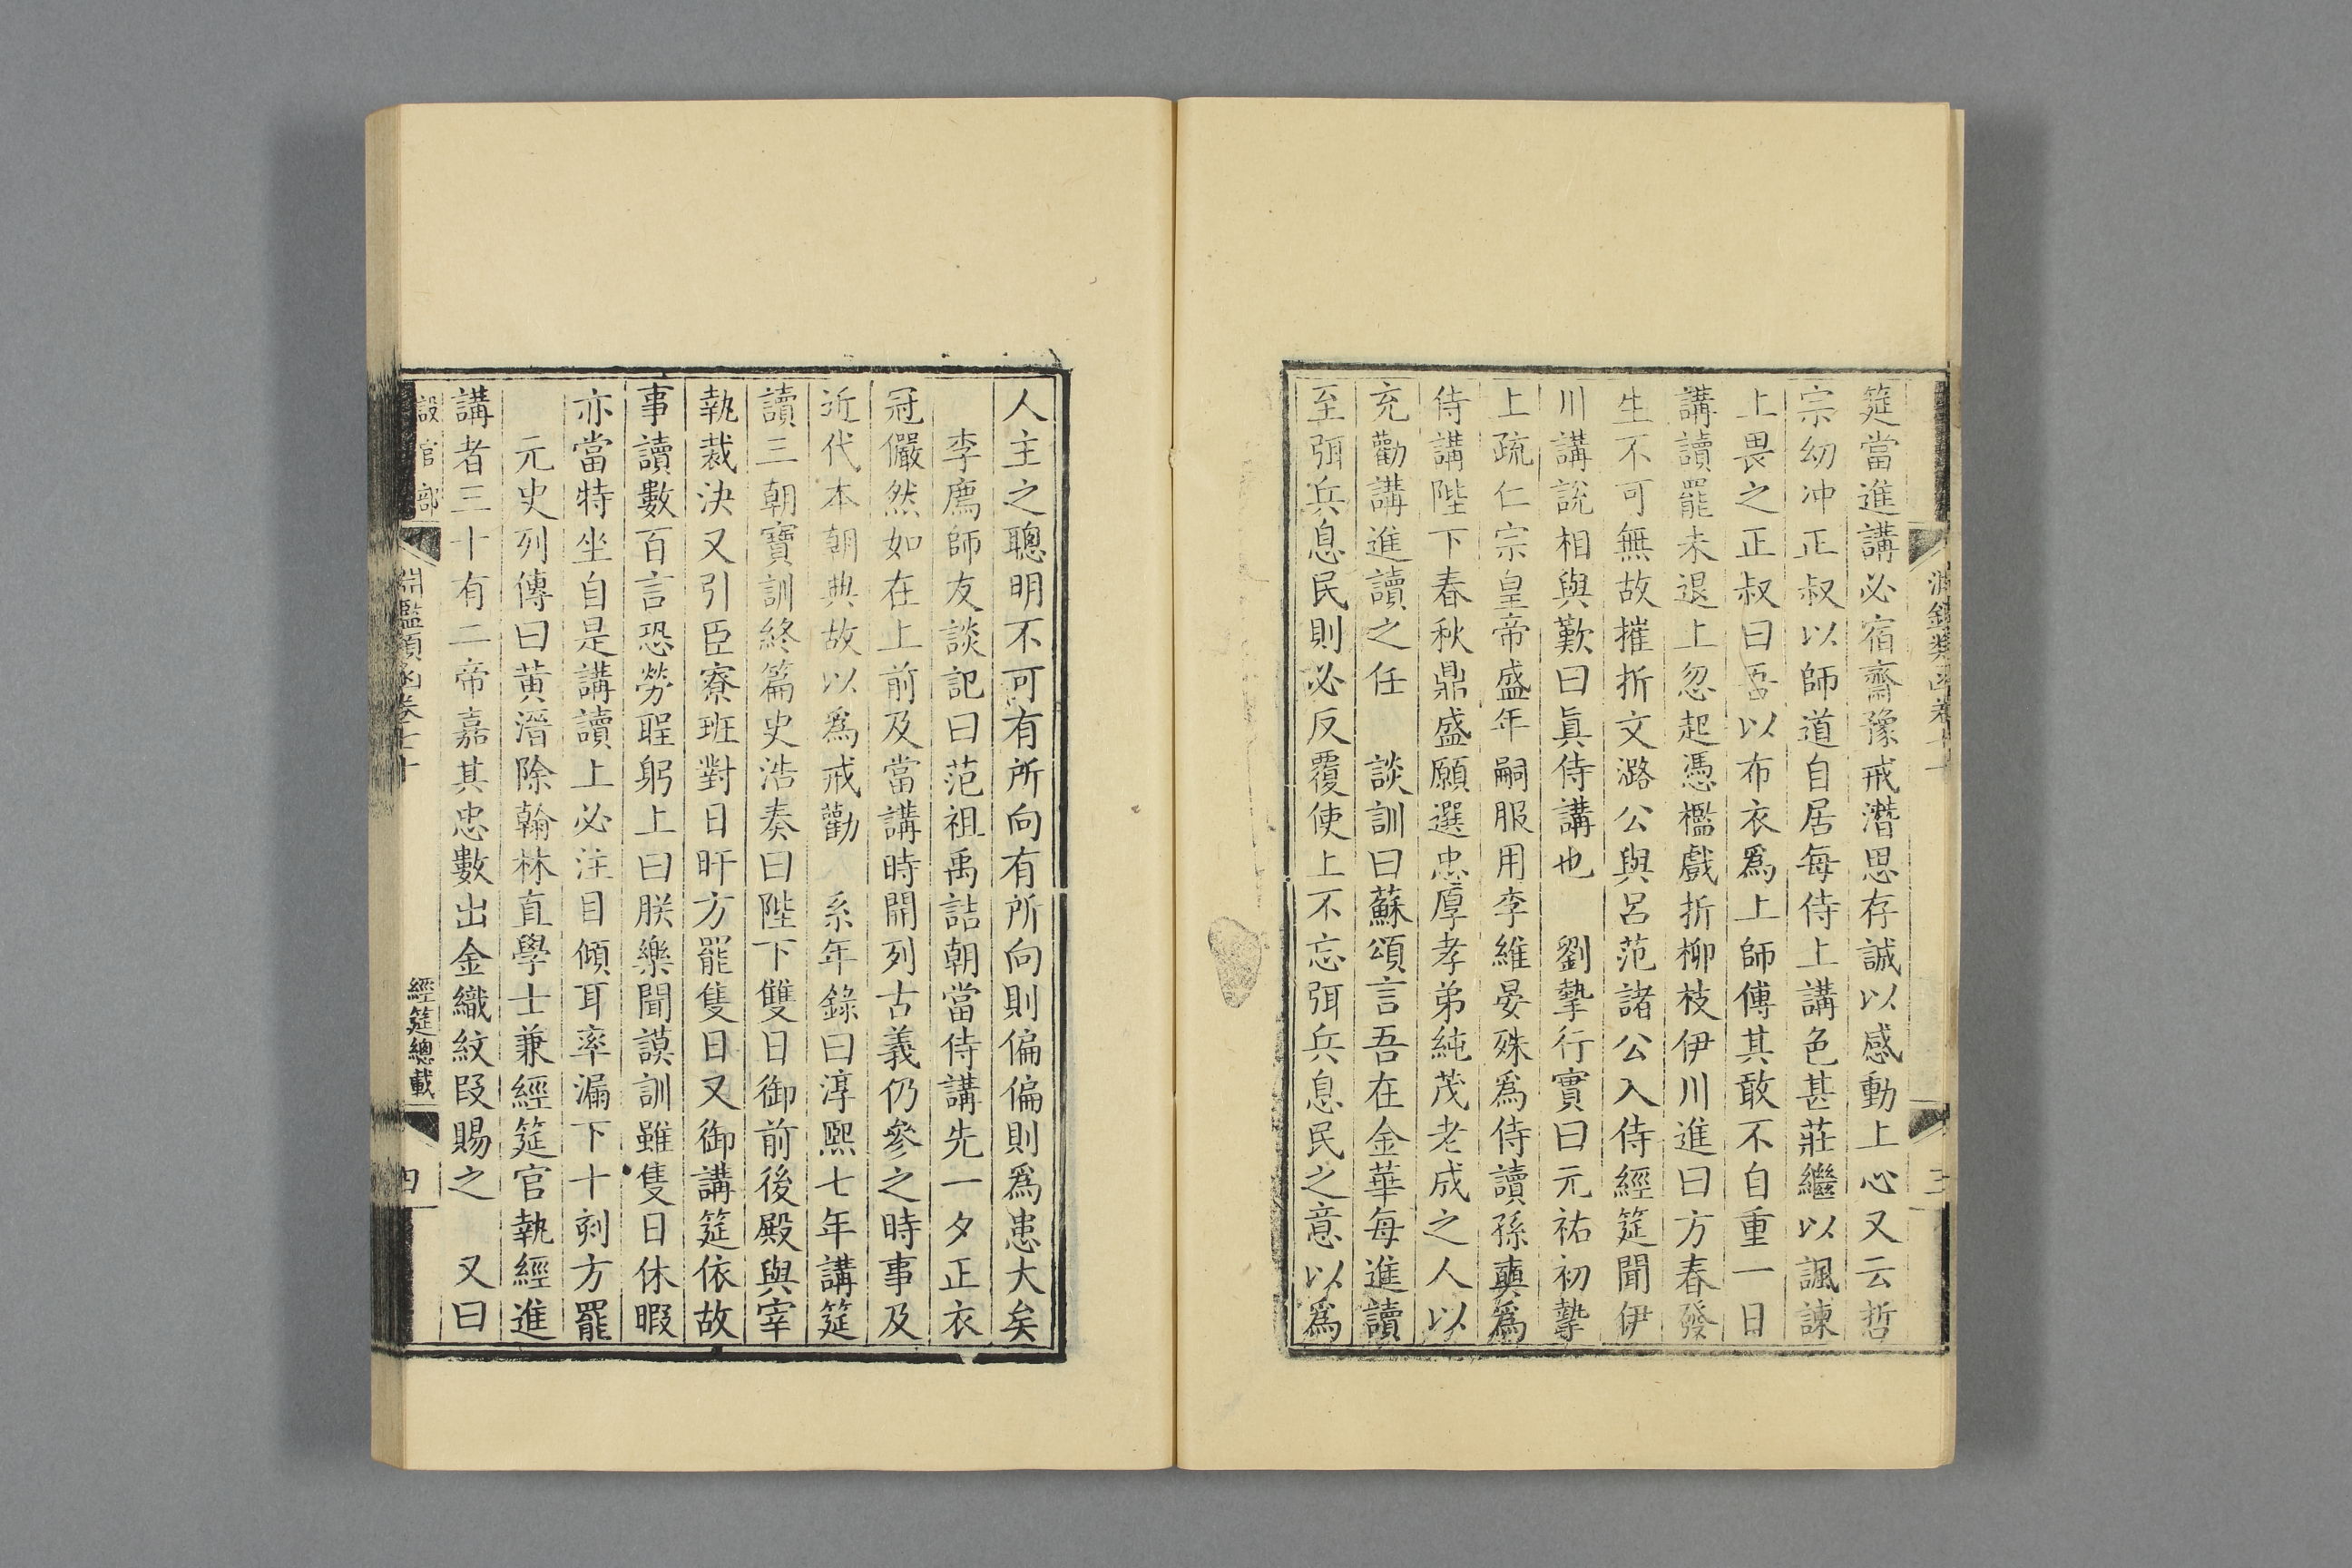 筵當進講必宿齋豫戒潛思存誠以感動上心又云哲
宗幼冲正叔以師道自居每侍上講色甚莊繼以諷諫
上畏之正叔曰吾以布衣爲上師傅其敢不自重一日
講讀罷未退上忽起憑檻戲折柳枝伊川進曰方春發
生不可無故摧折文潞公與呂范諸公入侍經筵聞伊
川講說相與歎曰眞侍講也　劉摯行實曰元祐初摯
上疏仁宗皇帝盛年嗣服用李維晏殊爲侍讀孫奭爲
侍講陛下春秋鼎盛願選忠厚孝弟純茂老成之人以
充勸講進讀之任　談訓曰蘇頌言吾在金華每進讀
至弭兵息民則必反覆使上不忘弭兵息民之意以爲
人主之聰明不可有所向有所向則偏偏則爲患大矣
李廌師友談記曰范祖禹詰朝當侍講先一夕正衣
冠儼然如在上前及當講時開列古義仍參之時事及
近代本朝典故以爲戒勸　系年錄曰淳熙七年講筵
讀三朝寶訓終篇史浩奏曰陛下雙日御前後殿與宰
執裁決又引臣寮班對日旰方罷隻日又御講筵依故
事讀數百言恐勞聖躬上曰朕樂聞謨訓雖隻日休暇
亦當特坐自是講讀上必注目傾耳率漏下十刻方罷
元史列傳曰黃溍除翰林直學士兼經筵官執經進
講者三十有二帝嘉其忠數出金織紋段賜之　又曰
設官部
淵鑑類函卷七十
經筵總載
四